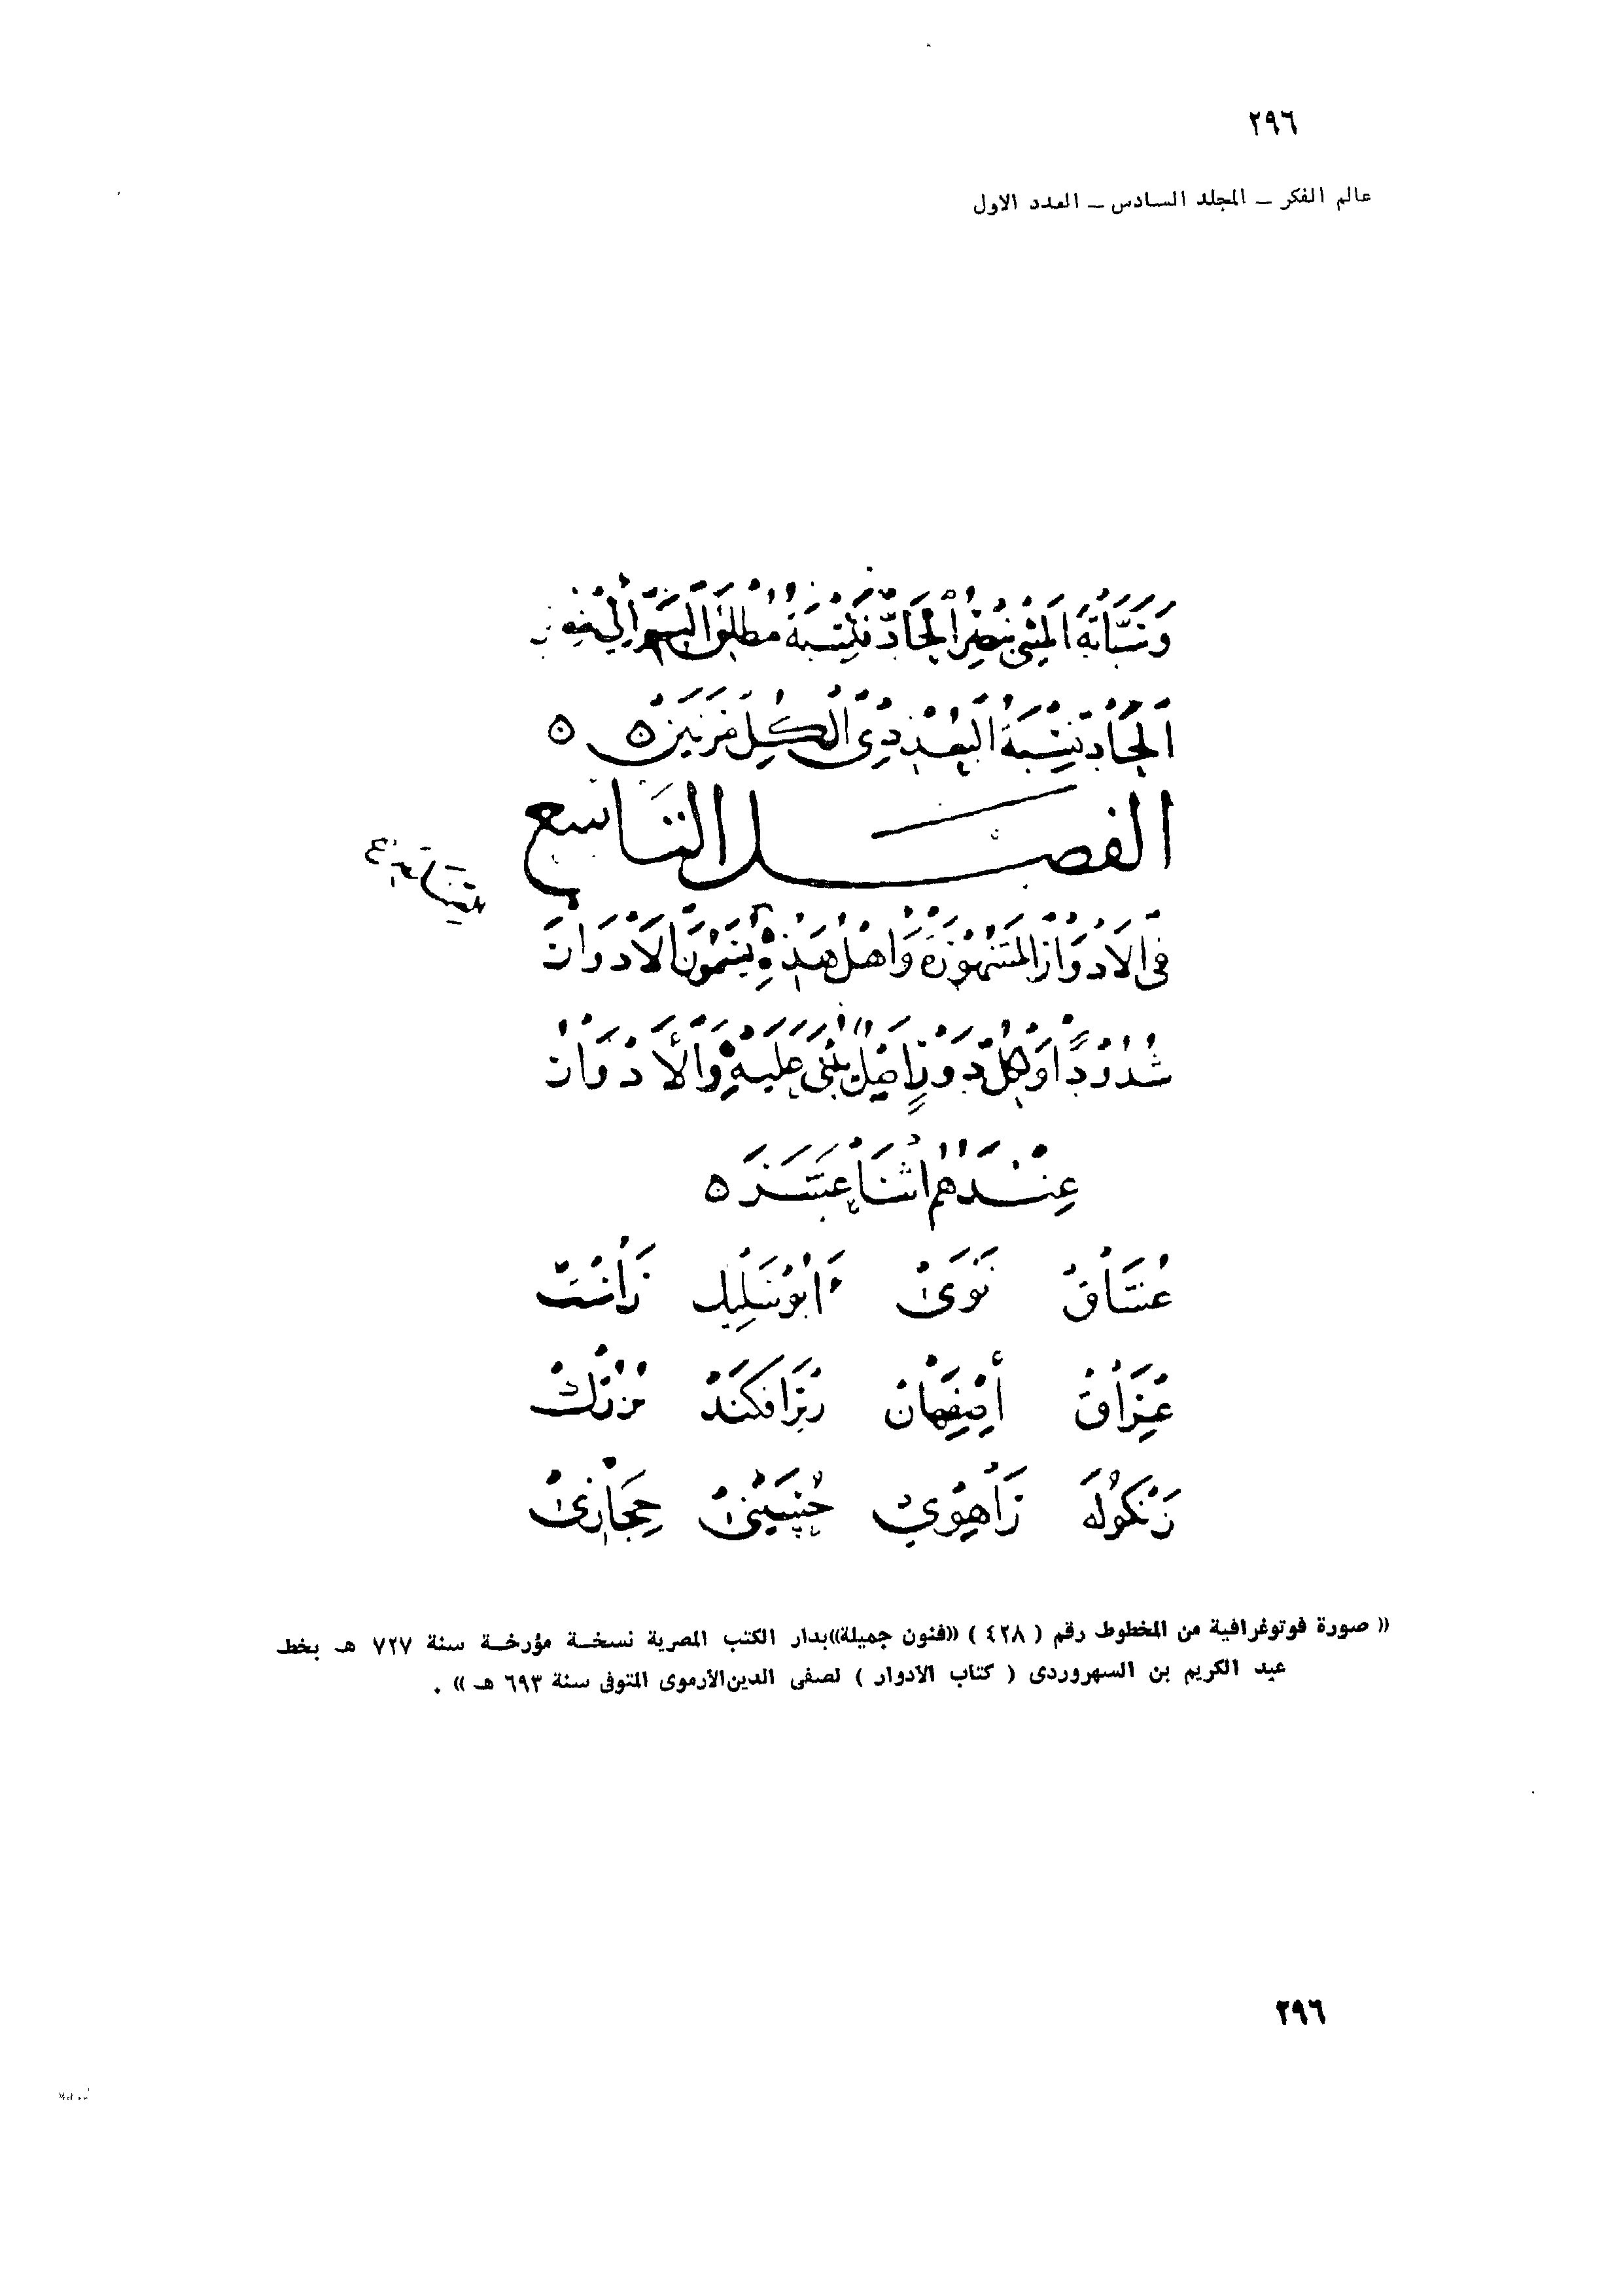 ٢٩٦
عالم الفكر – المجلد السادس – العدد الاول
وَنَسَبَّابَة المثنى بنصر الحاد فكنسبة مطلق البم الى
الحاد نسبة البعد ذى الكل مرتين ه ه
الفصل التاسع
فى الادوار المشهورة واهل هذه يسمون الادوار
شدودًا ولكل دور اصل يبنى عليه والأدوار
عندهم اثنا عشر ه
عشاق نوى ابوسليك راست
عراق أصفهان زيرافكند بزرك
زنكوله راهوي حسينى حجازى
(( صورة فوتوغرافية من المخطوط رقم ( ٤٢٨ ) ((فنون جميلة))بدار الكتب المصرية نسخة مؤرخة سنة ٧٢٧ هـ بخط
عبد الكريم بن السهروردى ( كتاب الادوار ) لصفى الدين الارموى المتوفى سنة ٦٩٣ هـ )) .
٢٩٦